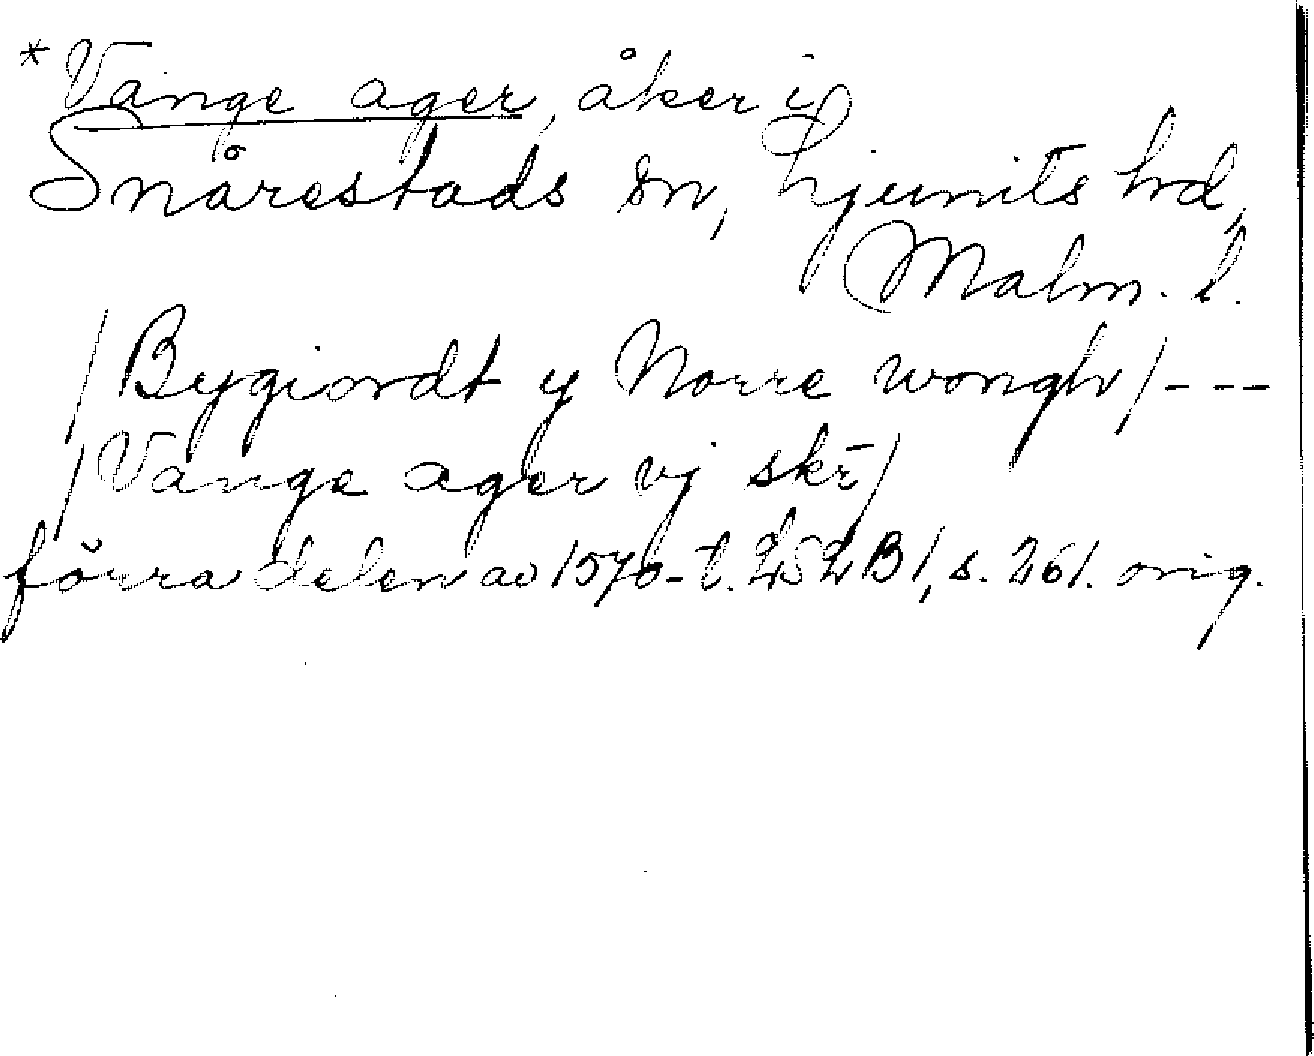 *Vange ager, åker i
Snårestads sn, Ljunits hd,
Malm. l.
/Bygiordt y Norre wongh/---
/Vange ager vj skr̄/
förra delen av 1570-t. LSLB1, s. 261. orig.